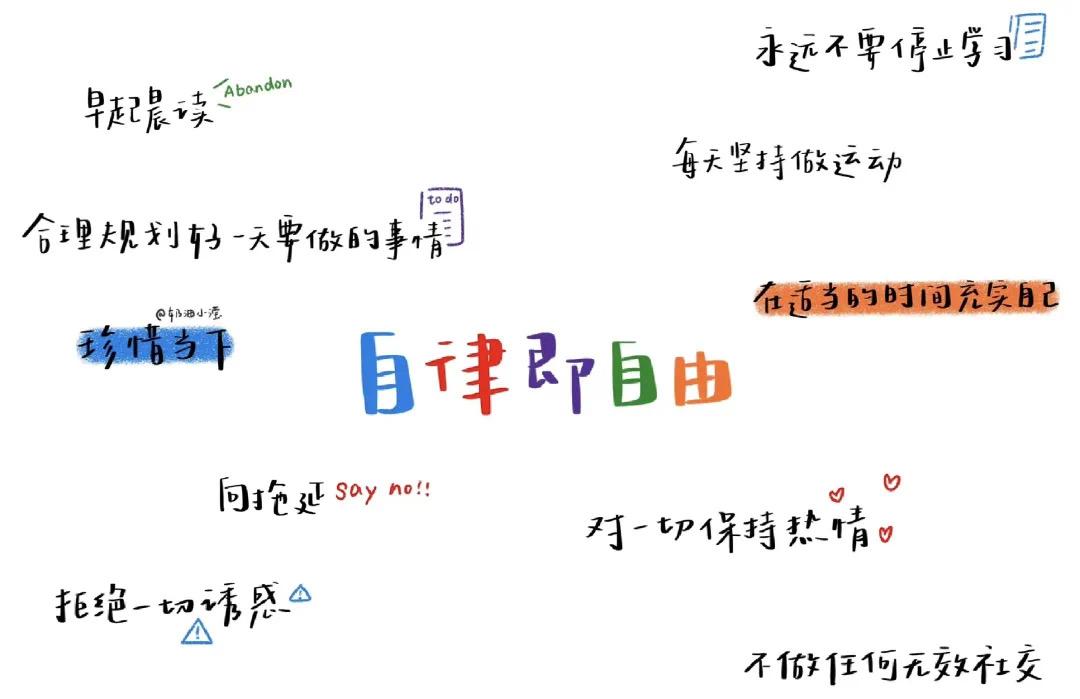 永远不要停止学习
早起晨读
Abandon
每天坚持做运动
to do
合理规划好一天要做的事情
在适当的时间充实自己
@奶油小滢
珍惜当下
自律即自由
向拖延 say no!!
对一切保持热情
拒绝一切诱惑
不做任何无效社交